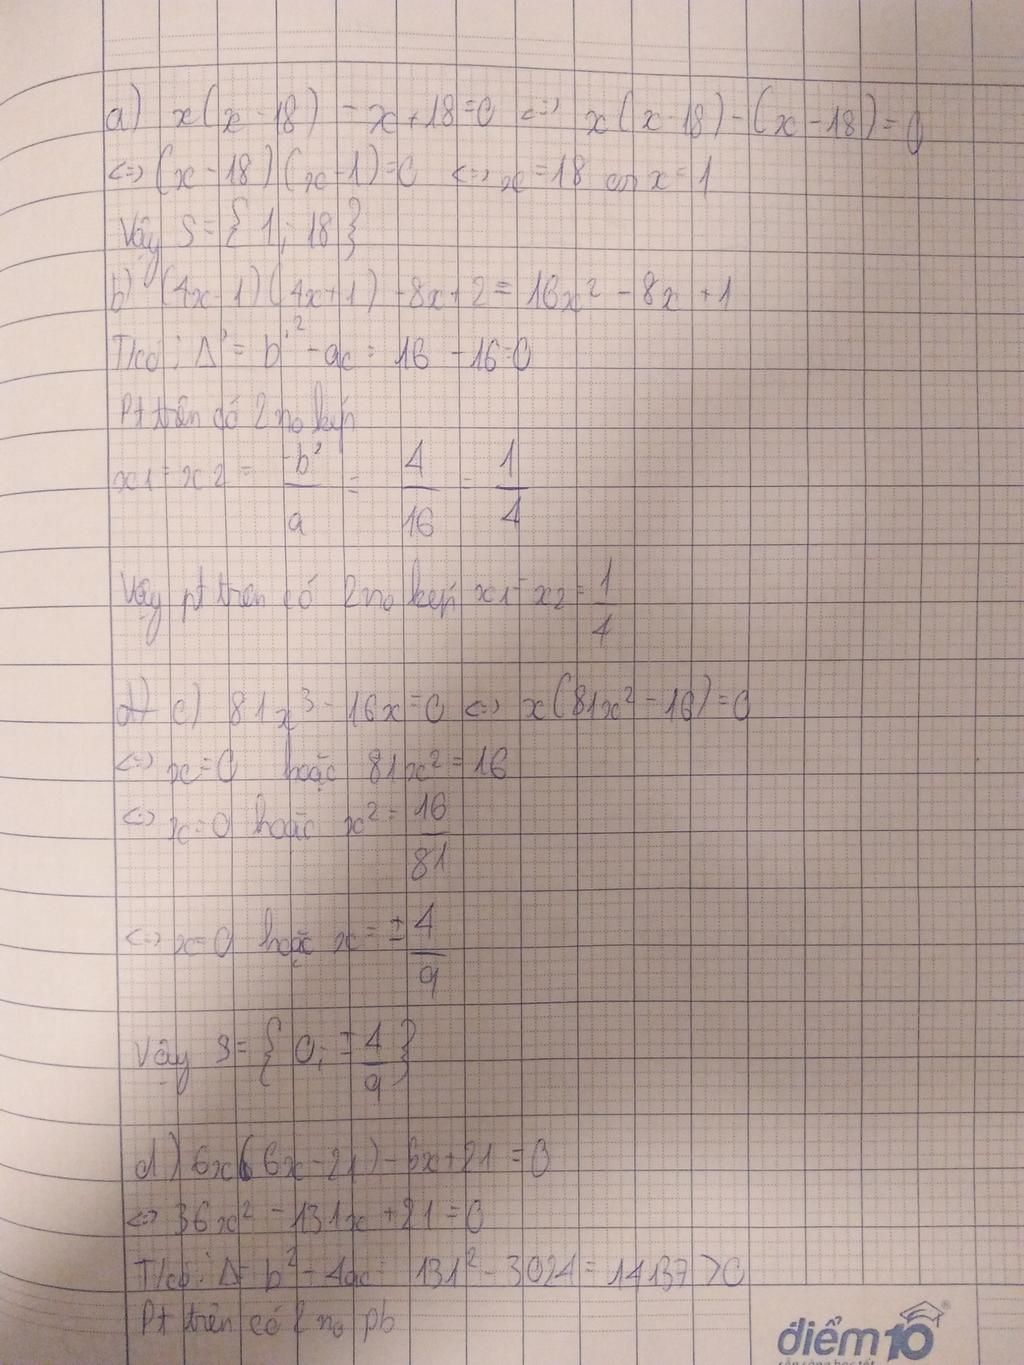 a) x(x-18) - x+18=0 <=> x(x-18)-(x-18)=0
<=> (x-18)(x-1)=0 <=> x=18 or x=1
Vậy S={1; 18}
b) (4x-1)(4x+1)-8x+2= 16x² - 8x +1
T/có: Δ'= b'² - ac = 16 - 16=0
Pt trên có 2 no kép
x1 = x2 = -b'/a = 4/16 = 1/4
Vậy pt trên có 2 no kép x1=x2=1/4
c) 81x³ - 16x=0 <=> x(81x²-16)=0
<=> x=0 hoặc 81x²=16
<=> x=0 hoặc x²=16/81
<=> x=0 hoặc x=±4/9
Vậy S={0; ±4/9}
d) 6x(6x-21)-6x+21=0
<=> 36x² - 131x +21=0
T/có: Δ= b² - 4ac= 131² - 3024= 14137>0
Pt trên có 2 no pb
điểm10